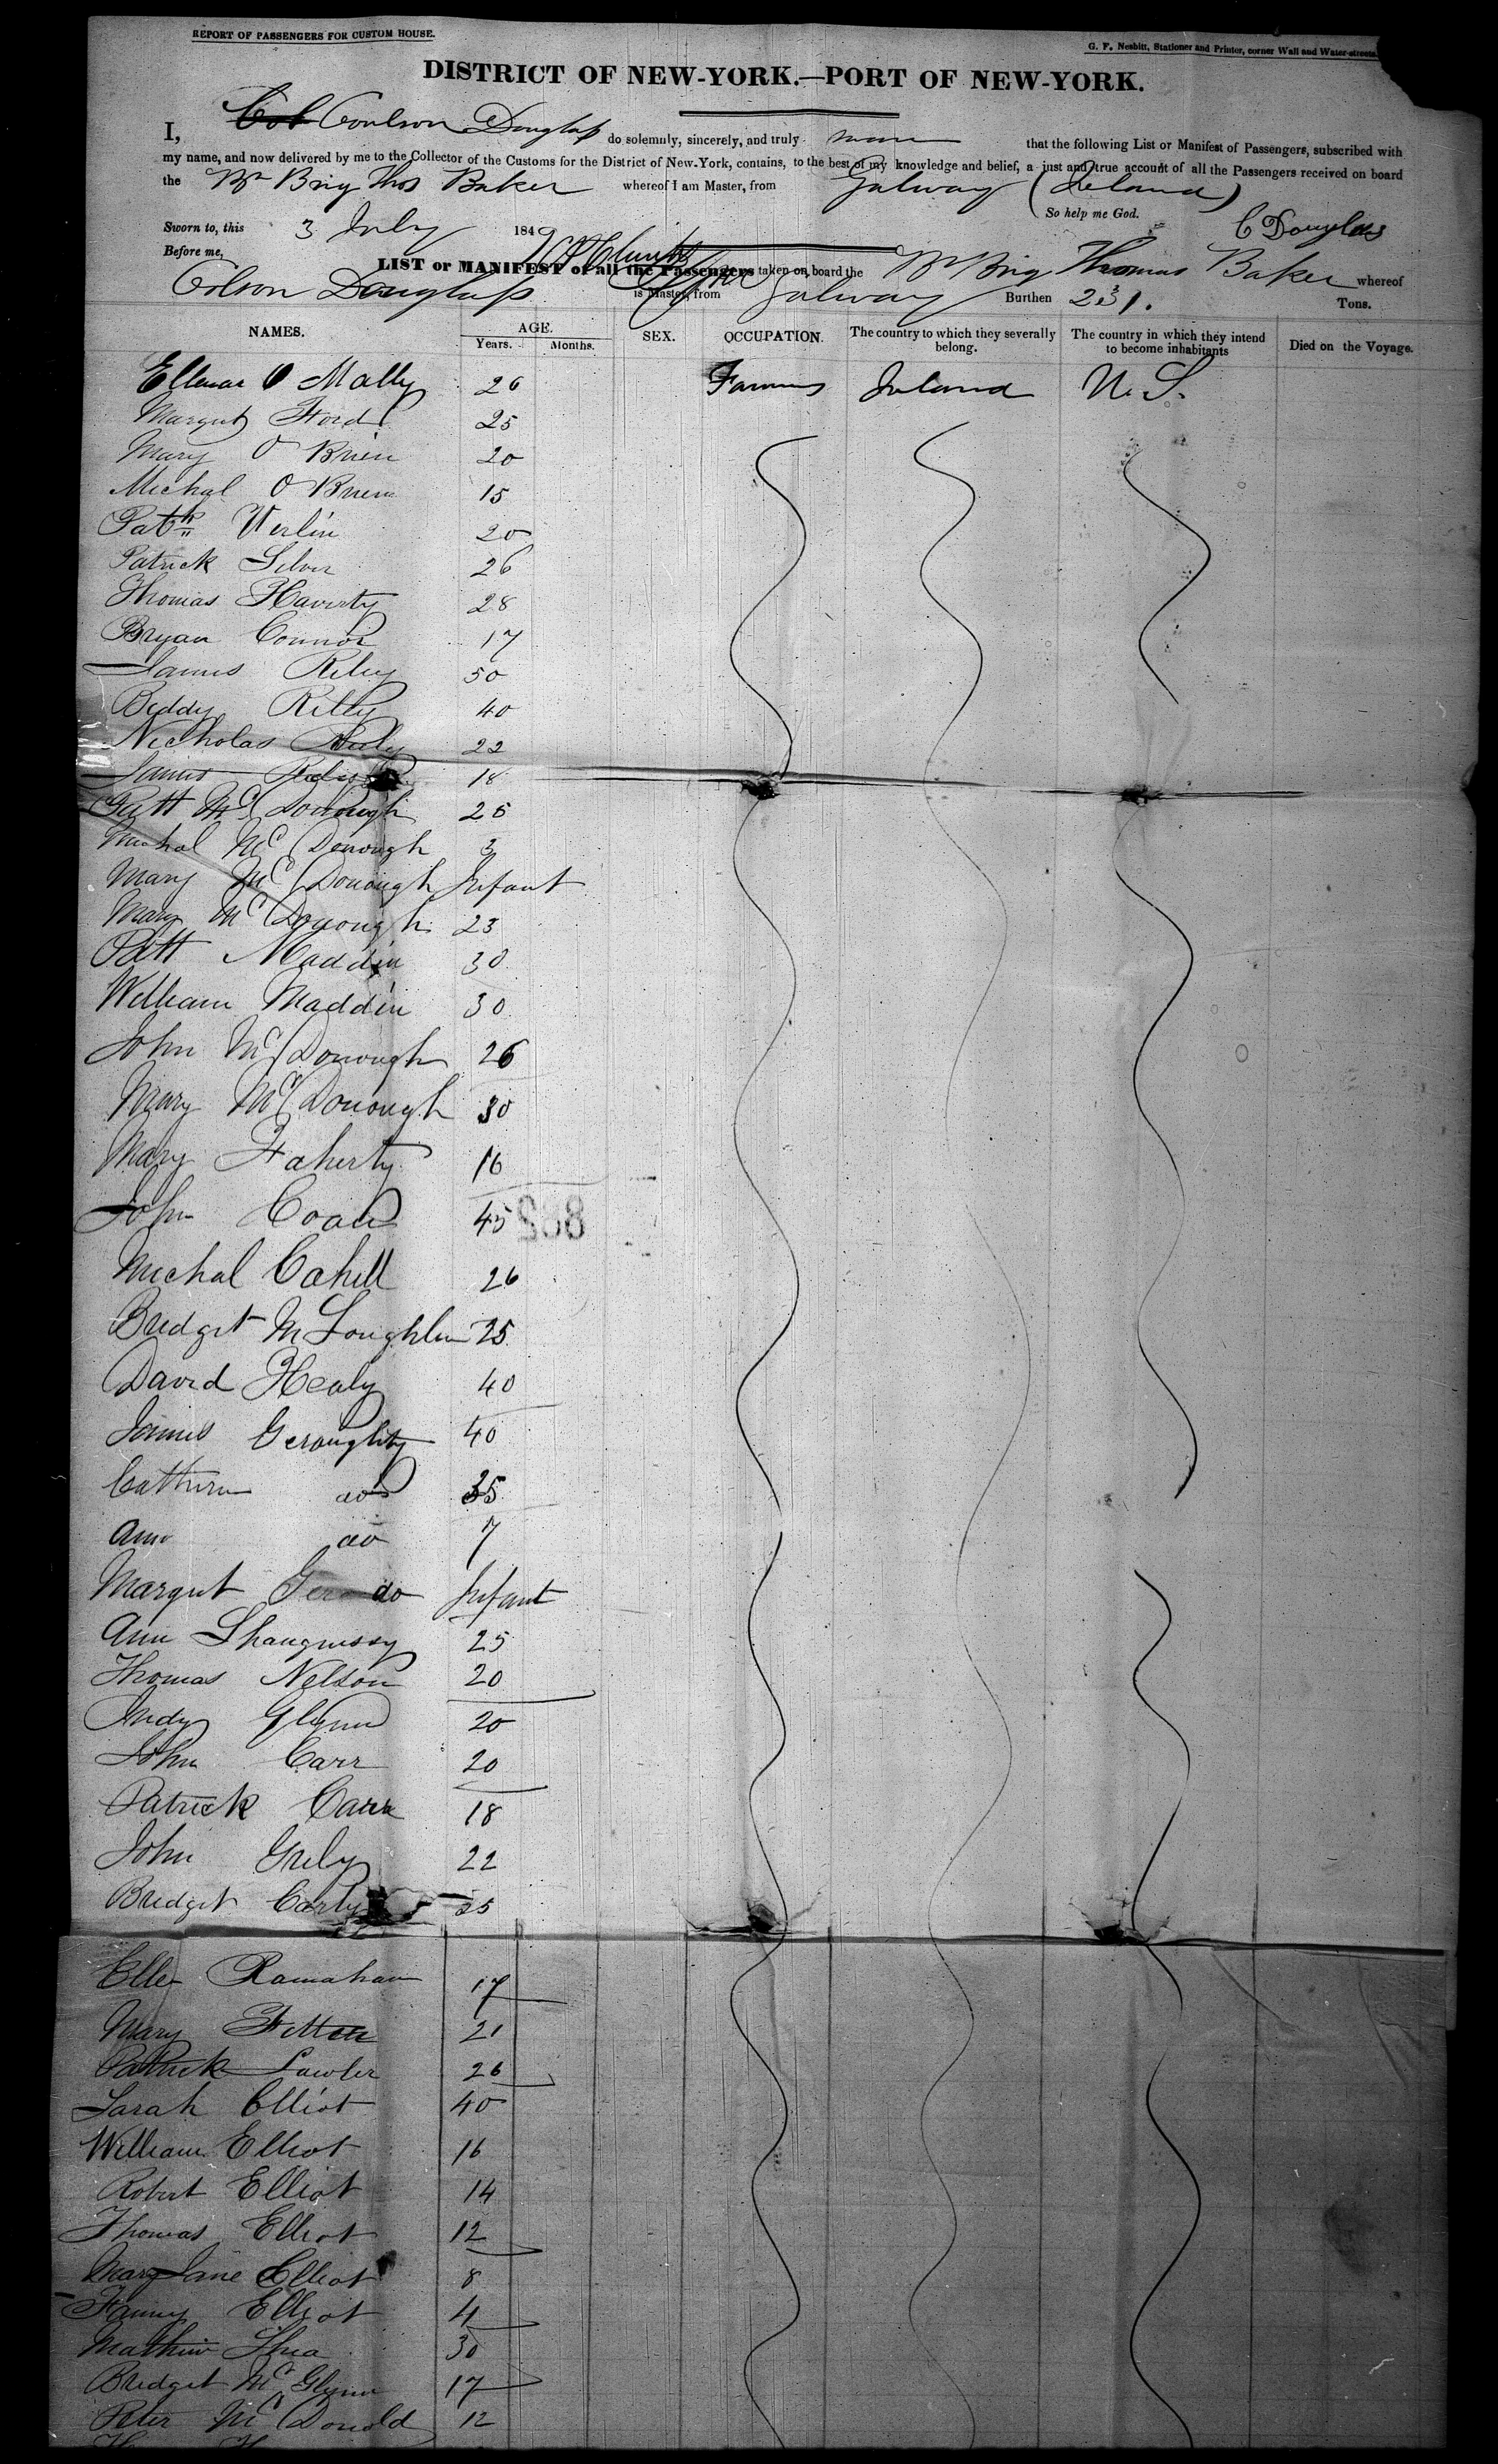 REPORT OF PASSENGERS FOR CUSTOM HOUSE.
G. F. Nesbitt, Stationer and Printer, corner Wall and Water-streets.
DISTRICT OF NEW-YORK.—PORT OF NEW-YORK.
I, Col Coulson Douglass do solemnly, sincerely, and truly swear that the following List or Manifest of Passengers, subscribed with
my name, and now delivered by me to the Collector of the Customs for the District of New-York, contains, to the best of my knowledge and belief, a just and true account of all the Passengers received on board
the Br Brig Thos Baker whereof I am Master, from Galway (Ireland)
So help me God.
Sworn to, this 3 July 1849 C Douglas
Before me,
LIST or MANIFEST of all the Passengers taken on board the Br Brig Thomas Baker whereof
Colson Douglass is Master, from Galway Burthen 231. Tons.
NAMES. AGE. Years. Months. SEX. OCCUPATION. The country to which they severally belong. The country in which they intend to become inhabitants Died on the Voyage.
O Mally 26 Farmers Ireland U. S.
Margret Ford 25
Mary O Brien 20
Michal O Brien 15
Patk Werlin 20
Patrick Silver 26
Thomas Haverty 28
Bryan Connor 17
James Riley 50
Biddy Rilly 40
Nicholas Rily 22
James 18
Patt McDonough 25
Michal McDonough 3
Mary McDonough Infant
Mary McDonough 23
Patt Maddin 30
William Maddin 30
John McDonough 26
Mary McDonough 30
Mary Faherty 16
John Coan 45
862
Michal Cahill 26
Bridget McLoughlin 25
David Healy 40
James Geraughty 40
Cathrin do 35
Ann do 7
Margret Ger do Infant
Ann Shaugnessy 25
Thomas Nelson 20
Judy Glynn 20
John Carr 20
Patrick Carr 18
John Grely 22
Bridget 25
Ellen Ramahan 17
Mary 21
Patrick Lawler 26
Sarah Elliot 40
William Elliot 16
Robert Elliot 14
Thomas Elliot 12
Mary Jane Elliot 8
Fanny Elliot 4
Mathew Shea 30
Bridget McGlynn 17
Peter McDonold 12